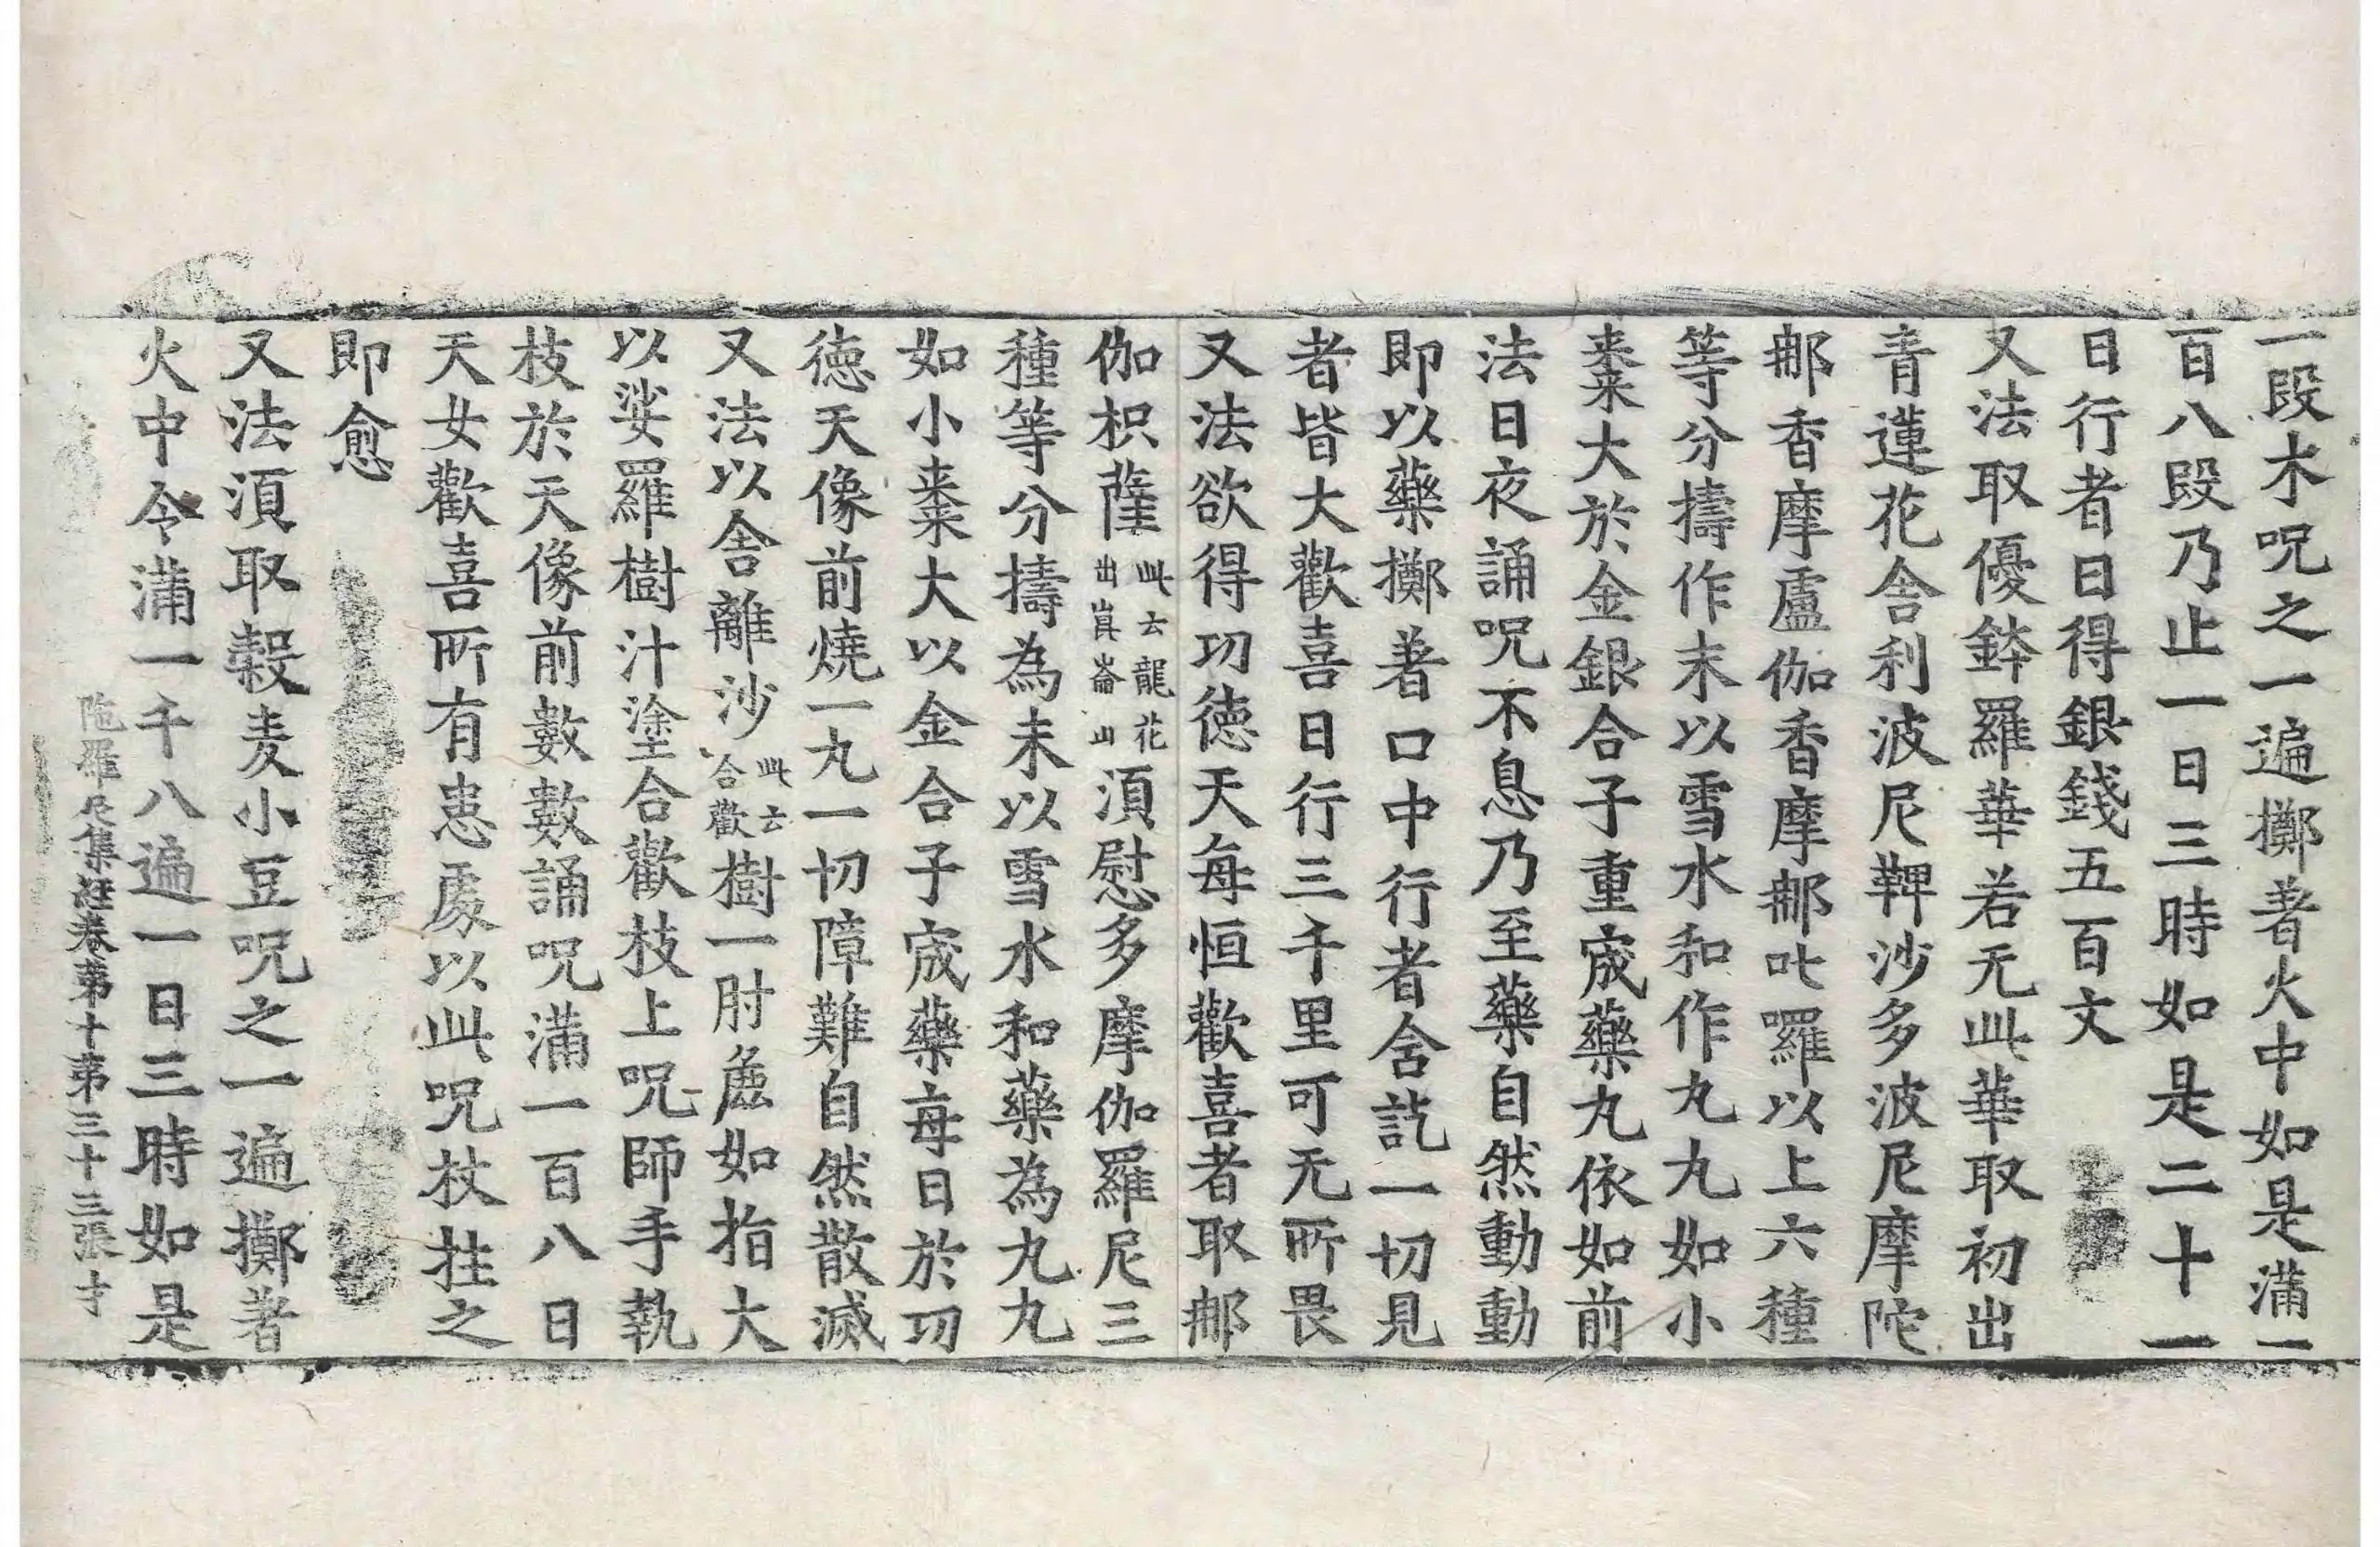 一段木呪之一遍擲著火中如是滿一
百八段乃止一日三時如是二十一
日行者日得銀錢五百文
又法取優鉢羅華若无此華取初出
青蓮花舍利波尼鞞沙多波尼摩陀
那香摩盧伽香摩那叱囉以上六種
等分擣作末以雪水和作丸丸如小
棗大於金銀合子重宬藥丸依如前
法日夜誦呪不息乃至藥自然動動
即以藥擲著口中行者含訖一切見
者皆大歡喜日行三千里可无所畏
又法欲得功德天每恒歡喜者取那
伽枳薩此云龍花出崑崙山須慰多摩伽羅尼三
種等分擣為末以雪水和藥為丸丸
如小棗大以金合子宬藥每日於功
德天像前燒一丸一切障難自然散滅
又法以舍離沙此云合歡樹一肘麁如指大
以娑羅樹汁塗合歡枝上呪師手執
枝於天像前數數誦呪滿一百八日
天女歡喜所有患處以此呪杖拄之
即愈
又法須取穀麦小豆呪之一遍擲著
火中令滿一千八遍一日三時如是
陁羅尼集経卷第十第三十三張才